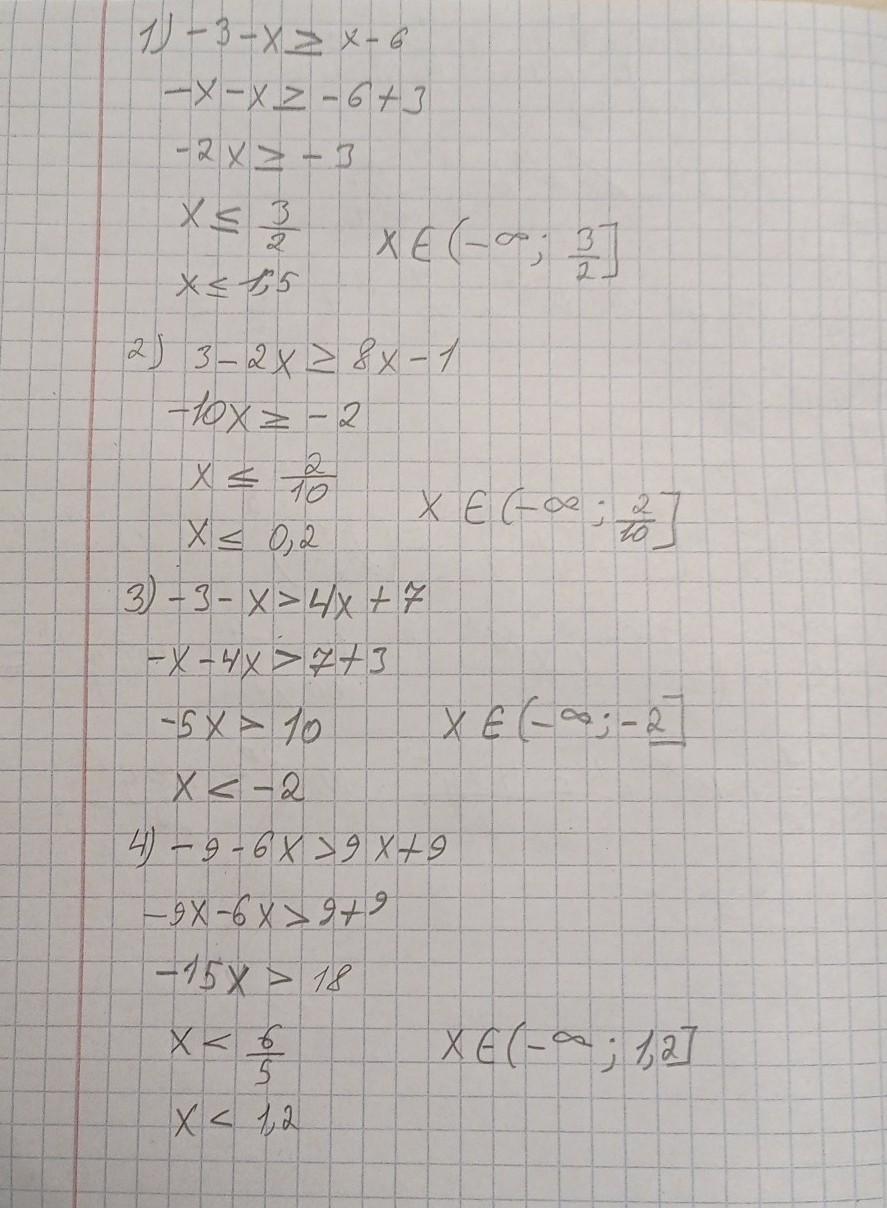 1) -3-x ≥ x-6
-x-x ≥ -6+3
-2x ≥ -3
x ≤ 3/2
x ∈ (-∞; 3/2]
x ≤ 1,5
2) 3-2x ≥ 8x-1
-10x ≥ -2
x ≤ 2/10
x ∈ (-∞; 2/10]
x ≤ 0,2
3) -3-x > 4x+7
-x-4x > 7+3
-5x > 10
x ∈ (-∞; -2]
x < -2
4) -9-6x > 9x+9
-9x-6x > 9+9
-15x > 18
x < 6/5
x ∈ (-∞; 1,2]
x < 1,2